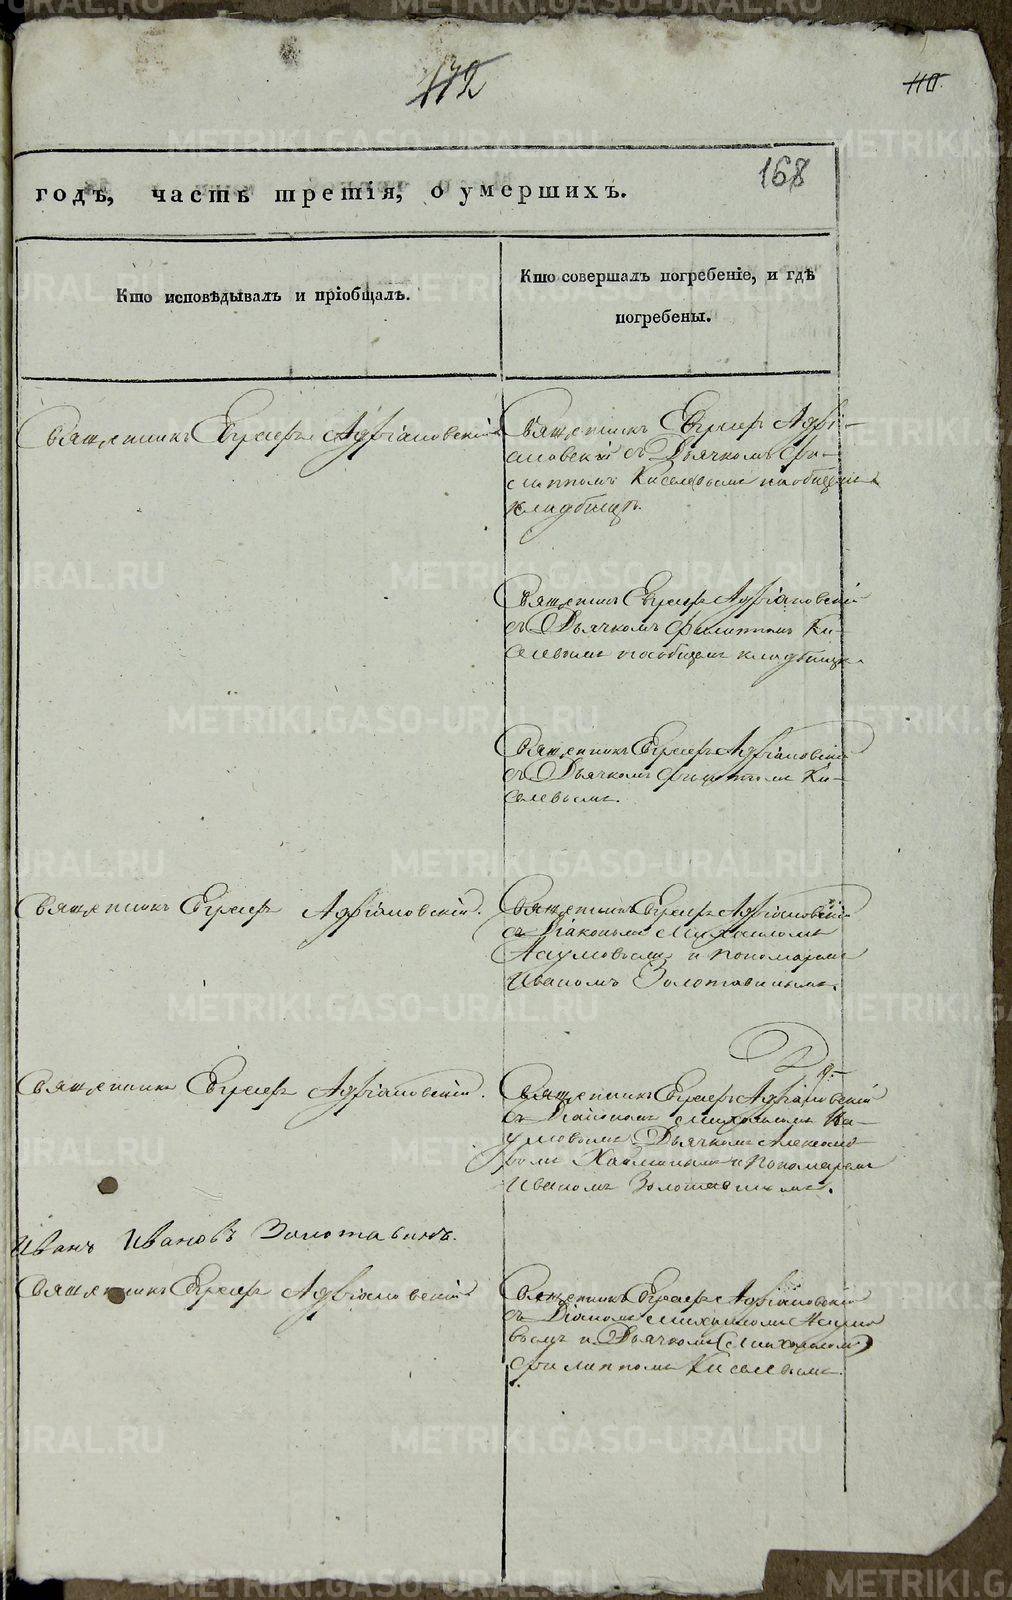 172
110.
168
годъ, часть третія, о умершихъ.
Кто исповѣдывалъ и пріобщалъ.
Кто совершалъ погребеніе, и гдѣ
погребены.
Священникъ Егоръ Адріановскій
Священникъ Егоръ Адрі-
ановскій съ Дьячкомъ Фи-
липпомъ Киселевымъ на общемъ
кладбищѣ.
Священник Егоръ Адріановскій
съ Дьячкомъ Филиппом Ки-
селевымъ на общемъ кладбищѣ.
Священникъ Егоръ Адріановскій
съ Дьячкомъ Филиппомъ Ки-
селевымъ.
Священникъ Егоръ Адріановскій.
Священникъ Егоръ Адріановскій
съ Діакономъ Михаиломъ
Наумовымъ и пономаремъ
Иваномъ Золотавинымъ.
Священникъ Егоръ Адріановскій.
Священникъ Егоръ Адріановскій
съ Діакономъ Михаиломъ На-
умовымъ Дьячкомъ
и пономаремъ
Иваномъ Золотавинымъ.
Иванъ Ивановъ Золотавинъ.
Священникъ Егоръ Адріановскій
Священникъ Егоръ Адріановскій
съ Діакономъ Михаиломъ Наумо
вымъ и Дьячкомъ (Михаиломъ)
Филиппомъ Киселевымъ.
METRIKI.GASO-URAL.RU